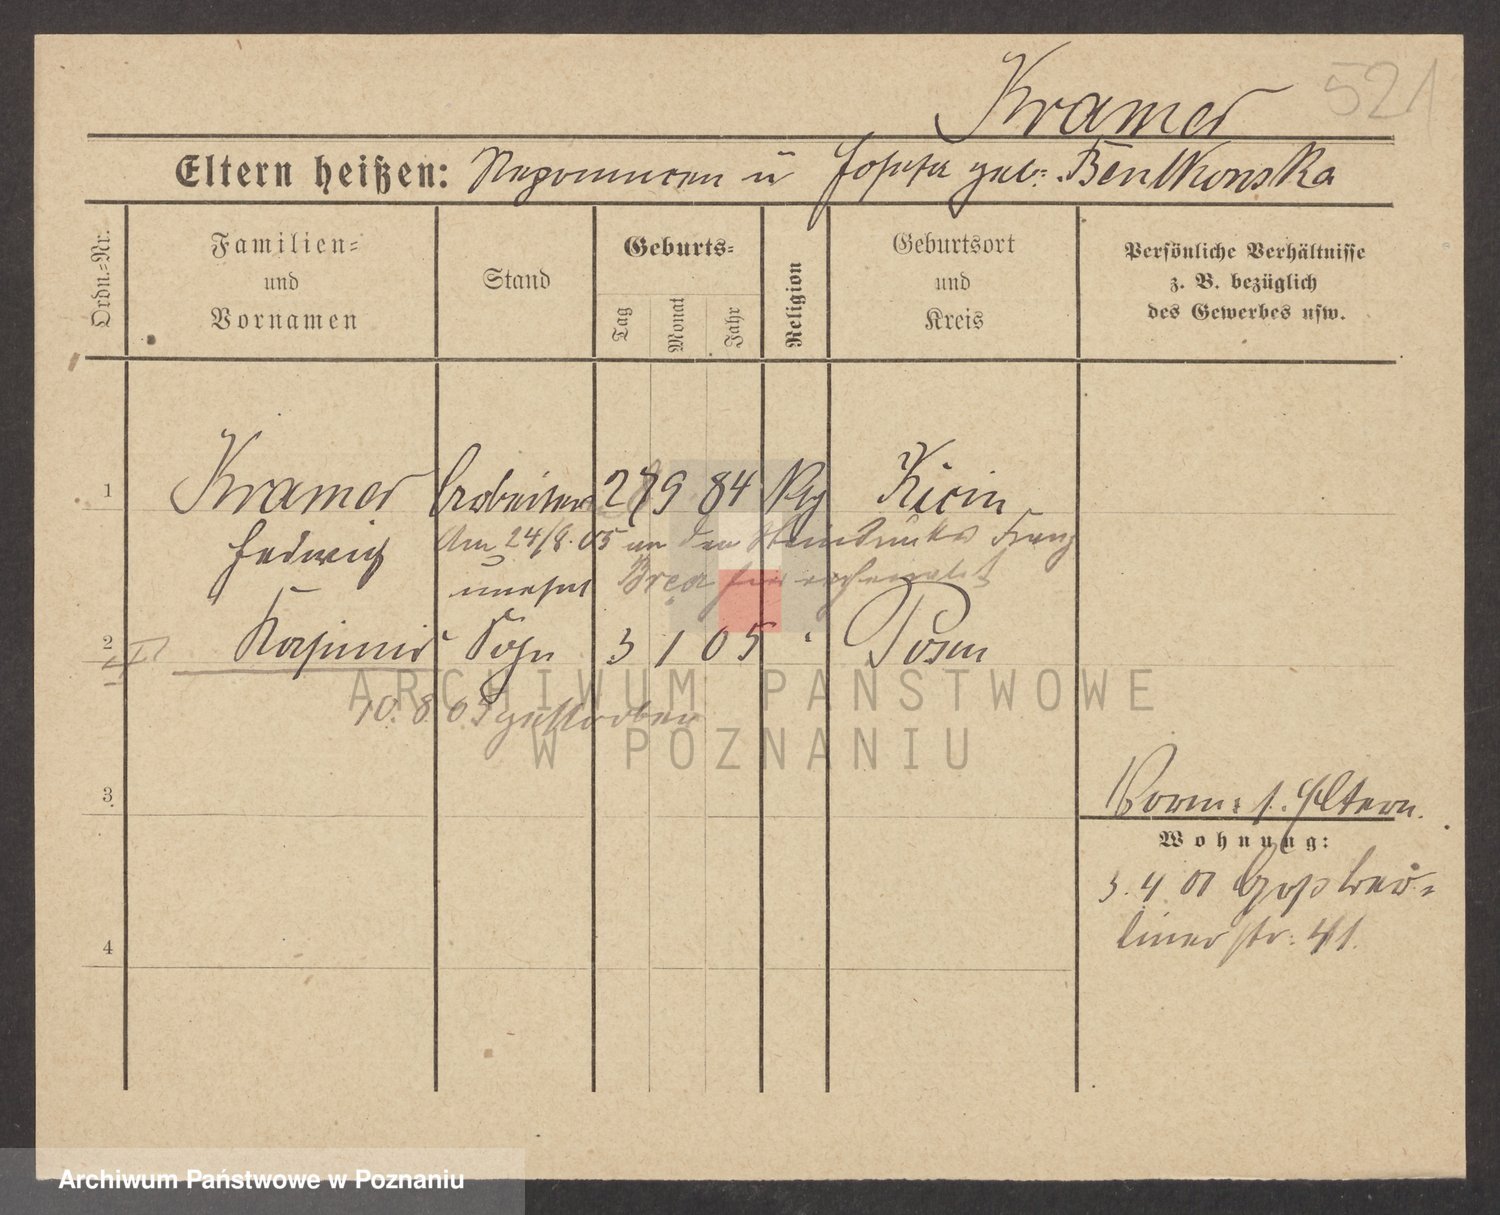 521
Kramer
Eltern heißen: Nepomucen u Josefa geb: Bentkowska
Ordn.=Nr.
Familien=
und
Vornamen
Stand
Geburts=
Tag
Monat
Jahr
Religion
Geburtsort
und
Kreis
Persönliche Verhältnisse
z. B. bezüglich
des Gewerbes usw.
1 Kramer Arbeiterin 28 9 84 Kicin
Hedwig Am 24/8. 05 an den Franz
unehel
2 Kasimir Sohn 3 1 05 Posen
10. 8 05 gestorben
ARCHIWUM PAŃSTWOWE
W POZNANIU
3
Vorm: s. Eltern.
Wohnung:
3. 4 01 Groß Ber=
liner str: 41.
4
Archiwum Państwowe w Poznaniu